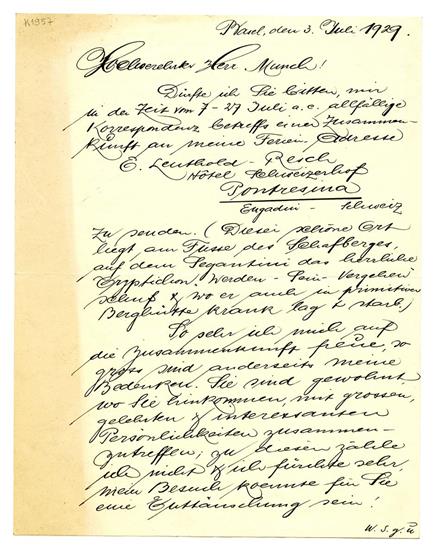 K1957
Basel, den 3. Juli 1929.
Hochverehrter Herr Munch!
Dürfte ich Sie bitten, mir
in der Zeit vom 7-27 Juli a.c. allfällige
Korrespondenz betreffs einer Zusammen-
kunft an meine Ferien Adresse
E. Leuthold-Resch
Hôtel Schweizerhof
Pontresina
Engadin - Schweiz
zu senden. (Dieser schöne Ort
liegt am Fusse des Schafberges,
auf dem Segantini das herrliche
Tryptichon: Werden - Sein - Vergehen
schuf & wo er auch in primitiver
Berghütte krank lag & starb.)
So sehr ich mich auf
die Zusammenkunft freue, so
gross sind anderseits meine
Bedenken. Sie sind gewohnt,
wo Sie hinkommen, mit grossen,
gelehrten & interessanten
Persönlichkeiten zusammen-
zutreffen; zu diesen zähle
ich nicht & ich fürchte sehr,
mein Besuch koennte für Sie
eine Enttäuschung sein!
W. S. g. ü